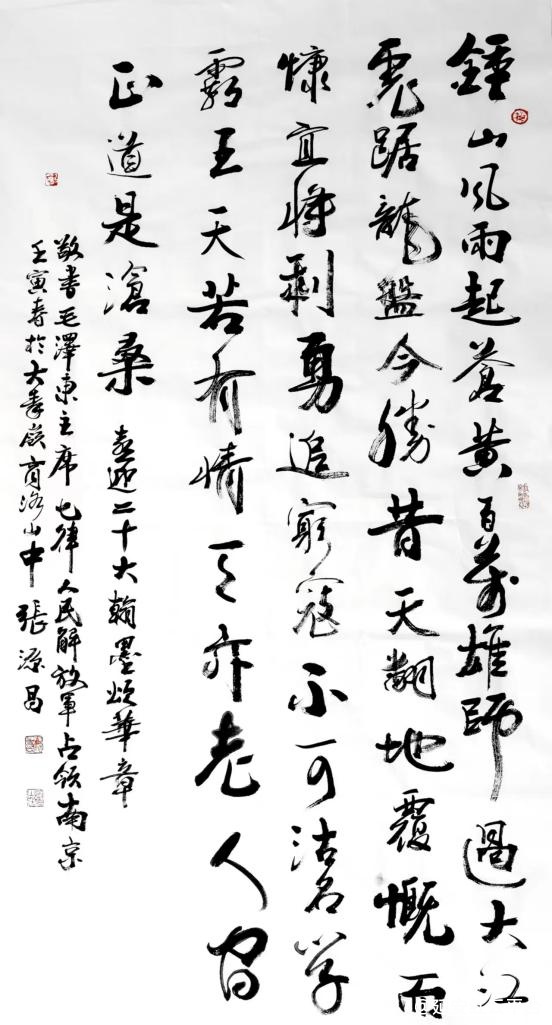 鍾山风雨起蒼黃百萬雄師過大江
虎踞龍盤今勝昔天翻地覆慨而
慷宜將剩勇追窮寇不可沽名學
霸王天若有情天亦老人間
正道是滄桑 喜迎二十大翰墨頌華章
敬書毛澤東主席七律人民解放軍占領南京
壬寅春於大秦嶺商洛山中 張源昌